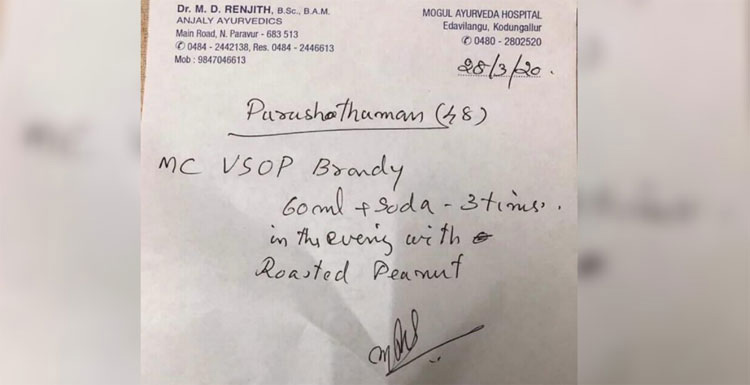 Dr. M. D. RENJITH, B.Sc., B.A.M.
ANJALY AYURVEDICS
Main Road, N. Paravur - 683 513
✆ 0484 - 2442138, Res. 0484 - 2446613
Mob : 9847046613
MOGUL AYURVEDA HOSPITAL
Edavilangu, Kodungallur
✆ 0480 - 2802520
28/3/20.
Purushothaman (48)
MC VSOP Brandy
60ml + Soda - 3 times.
in the evening with
Roasted Peanut